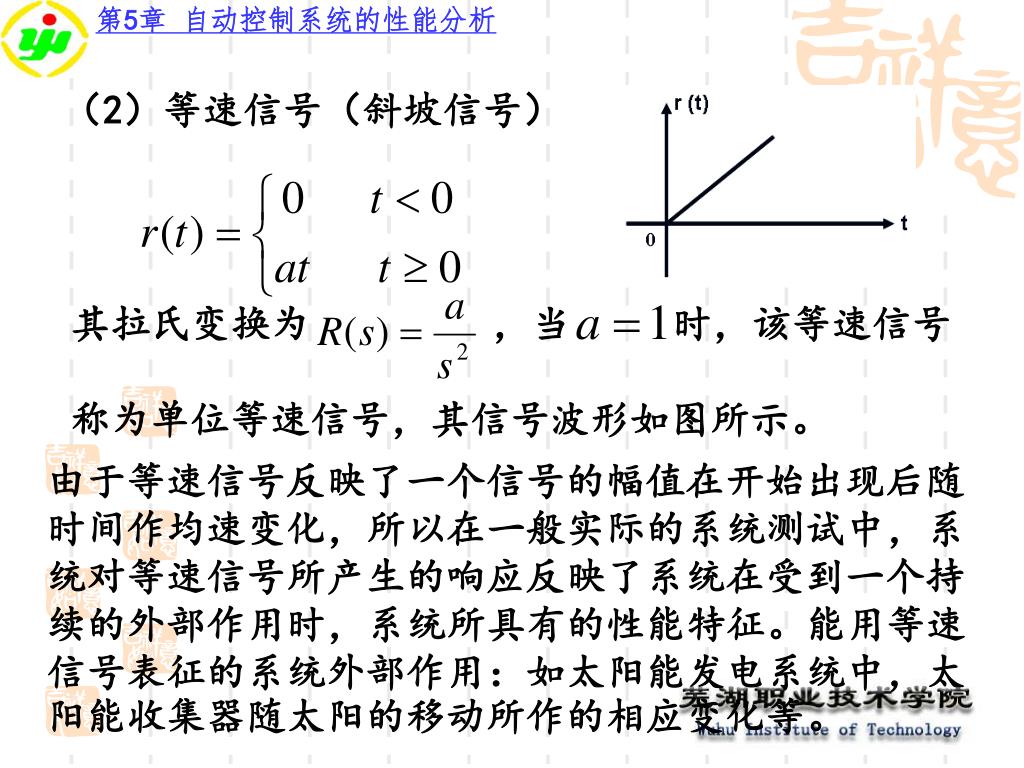 第5章 自动控制系统的性能分析
（2）等速信号（斜坡信号）
r (t)
t
0
r(t) = { 0 t < 0
at t ≥ 0
其拉氏变换为 R(s) = a / s² ，当 a = 1 时，该等速信号
称为单位等速信号，其信号波形如图所示。
由于等速信号反映了一个信号的幅值在开始出现后随
时间作均速变化，所以在一般实际的系统测试中，系
统对等速信号所产生的响应反映了系统在受到一个持
续的外部作用时，系统所具有的性能特征。能用等速
信号表征的系统外部作用：如太阳能发电系统中，太
阳能收集器随太阳的移动所作的相应变化等。
芜湖职业技术学院
Wuhu Institute of Technology
吉祥